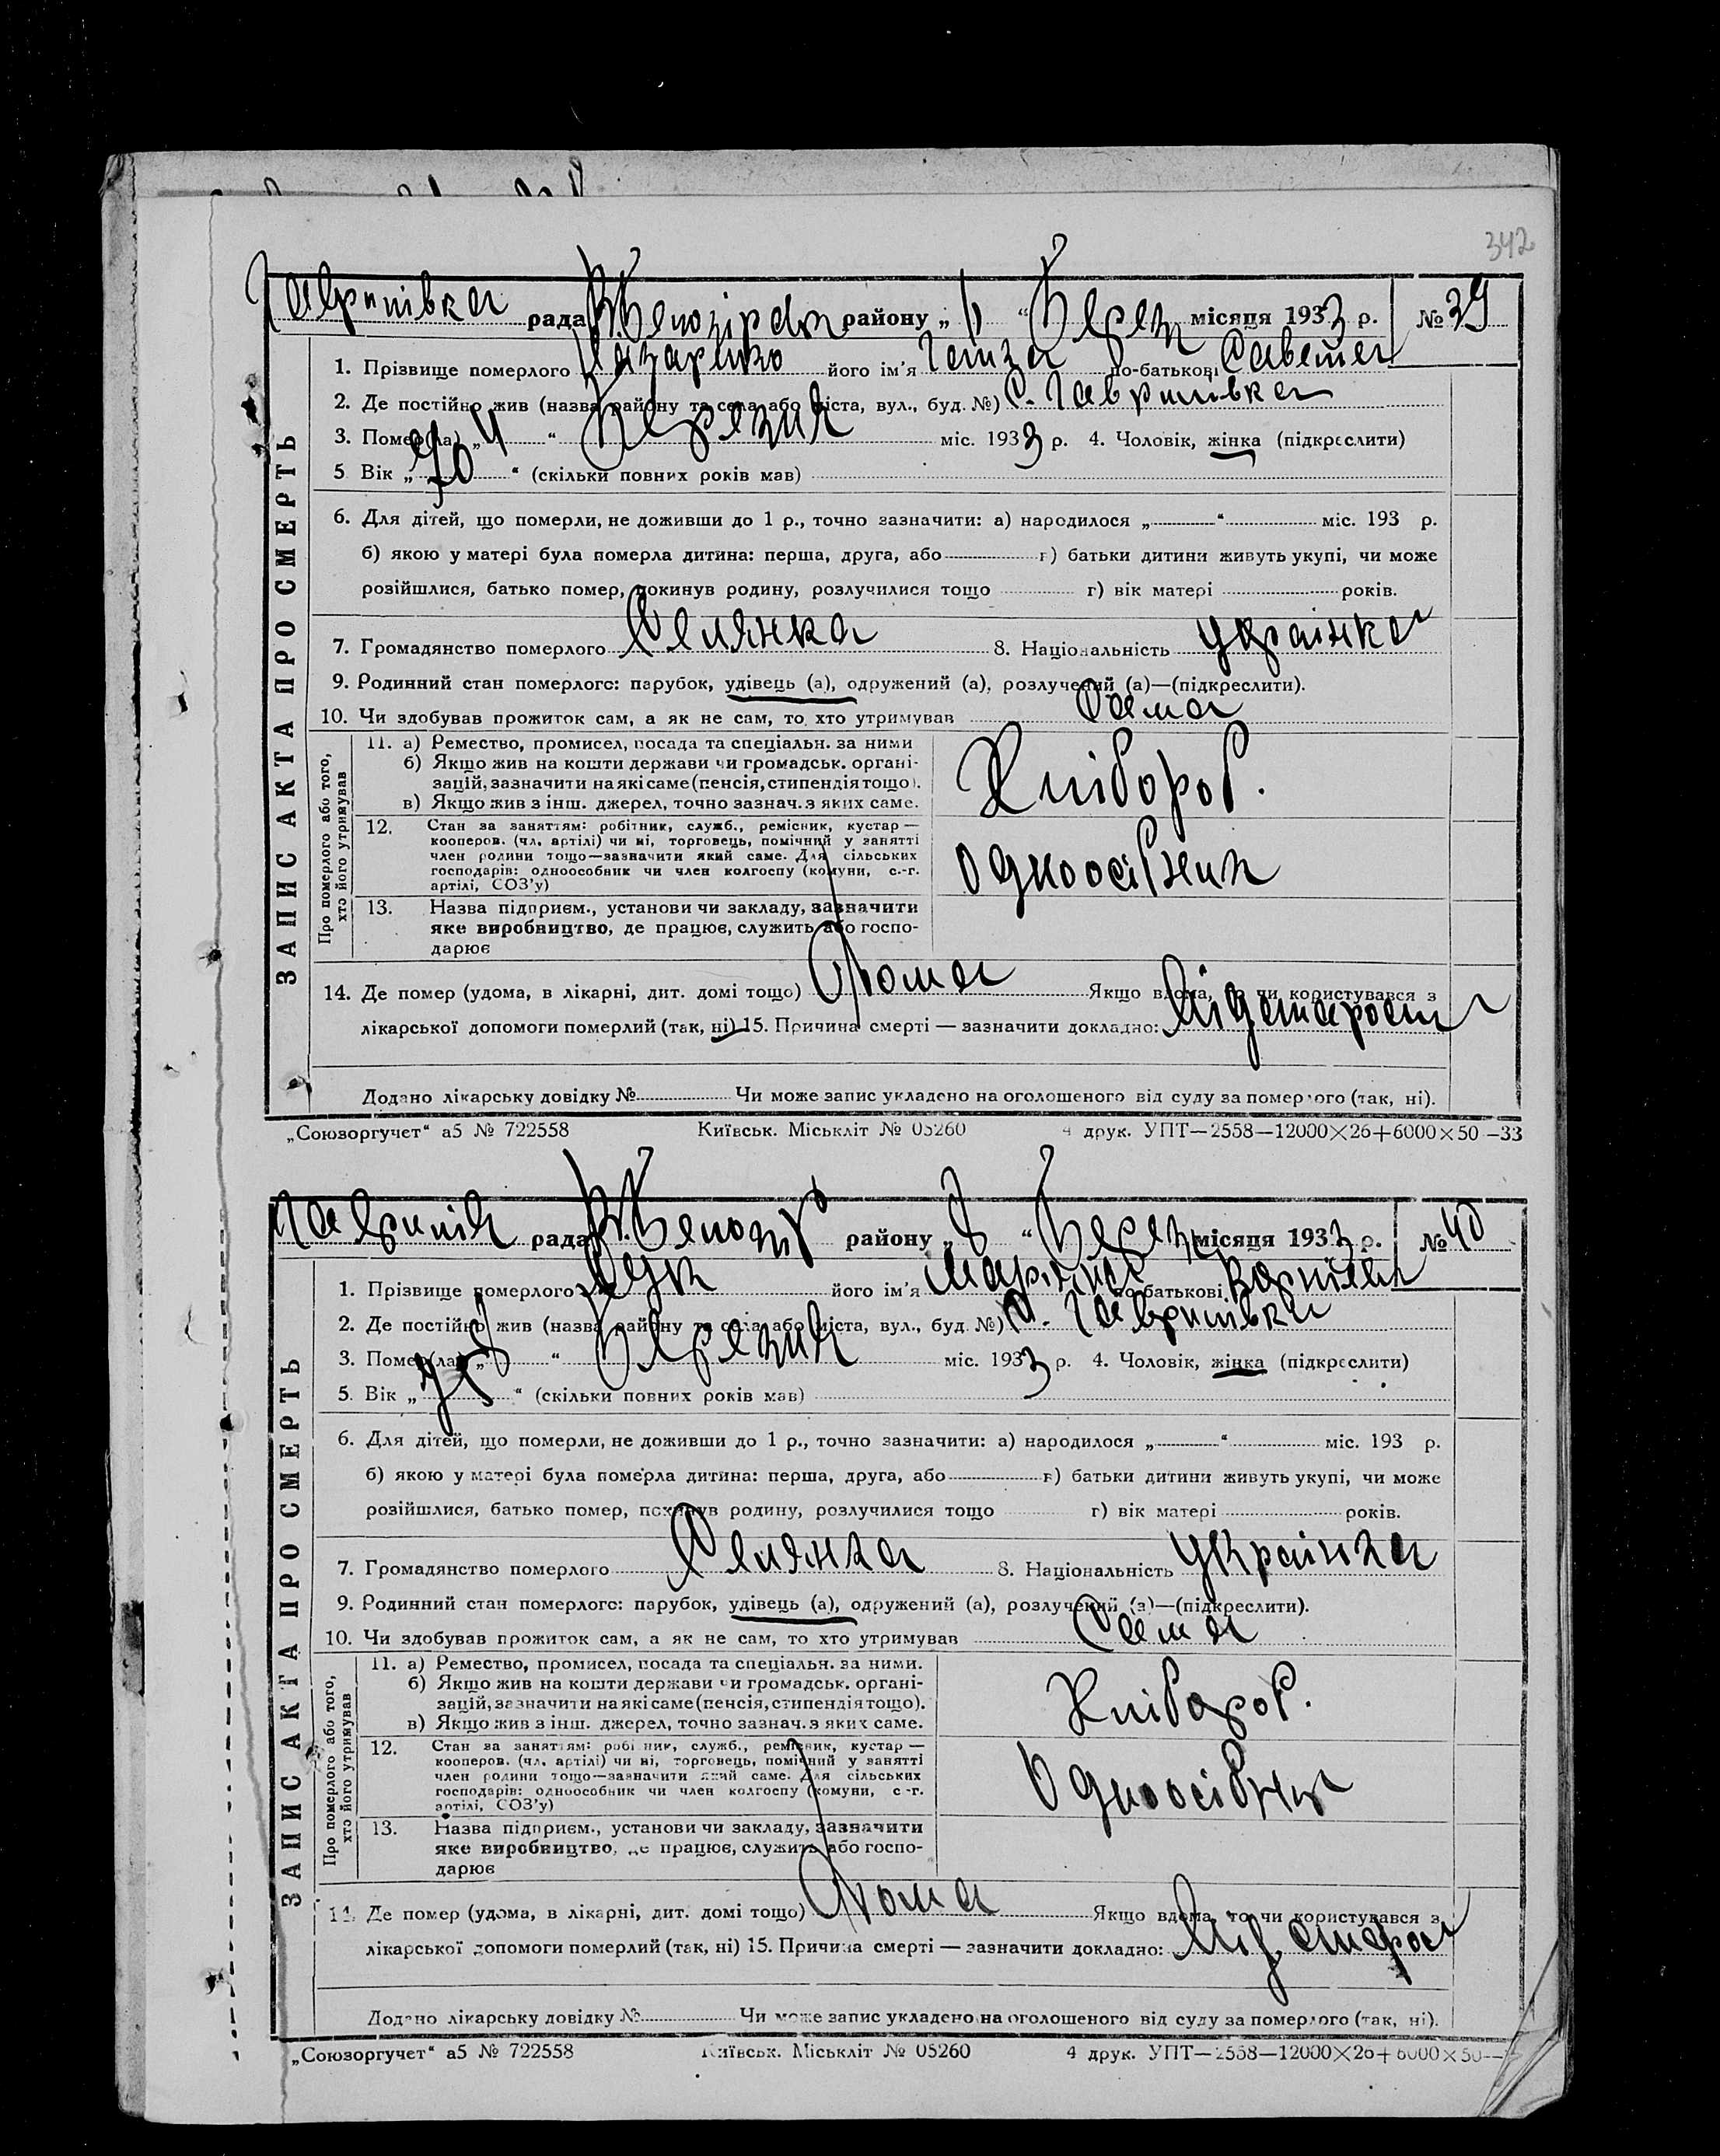 342
Гаврилівка рада району „ “ Берез місяця 1933 р. № 39
1. Прізвище померлого Назаренко його ім'я по-батькові
2. Де постійно жив (назва району та села або міста, вул., буд. №) с. Гаврилівка
3. Помер(ла) „4“ Березня міс. 1933 р. 4. Чоловік, жінка (підкреслити)
5 Вік „70“ (скільки повних років мав)
6. Для дітей, що померли, не доживши до 1 р., точно зазначити: а) народилося „ “ міс. 193 р.
б) якою у матері була померла дитина: перша, друга, або г) батьки дитини живуть укупі, чи може
розійшлися, батько помер, покинув родину, розлучилися тощо г) вік матері років.
7. Громадянство померлого Селянка 8. Національність Українка
9. Родинний стан померлого: парубок, удівець (а), одружений (а), розлучений (а)—(підкреслити).
10. Чи здобував прожиток сам, а як не сам, то хто утримував Сама
ЗАПИС АКТА ПРО СМЕРТЬ
Про померлого або того, хто його утримував
11. а) Ремество, промисел, посада та спеціальн. за ними
б) Якщо жив на кошти держави чи громадськ. органі-
зацій, зазначити на які саме (пенсія, стипендія тощо).
в) Якщо жив з інш. джерел, точно зазнач. з яких саме.
Хлібороб.
12. Стан за заняттям: робітник, служб., ремісник, кустар —
кооперов. (чл. артілі) чи ні, торговець, помічний у занятті
член родини тощо—зазначити який саме. Для сільських
господарів: одноособник чи член колгоспу (комуни, с.-г.
артілі, СОЗ'у)
Одноосібник
13. Назва підприєм., установи чи закладу, зазначити
яке виробництво, де працює, служить або госпо-
дарює
14. Де помер (удома, в лікарні, дит. домі тощо) Дома Якщо вдома, то чи користувався з
лікарської допомоги померлий (так, ні) 15. Причина смерті — зазначити докладно: Від старости
Додано лікарську довідку № Чи може запис укладено на оголошеного від суду за померлого (так, ні).
„Союзоргучет“ а5 № 722558 Київськ. Міськліт № 05260 4 друк. УПТ—2558—12000×26+6000×50—33
рада району „ “ Берез місяця 1933 р. № 40
1. Прізвище померлого його ім'я по-батькові
2. Де постійно жив (назва району та села або міста, вул., буд. №) с. Гаврилівка
3. Помер(ла) „ “ Березня міс. 1933 р. 4. Чоловік, жінка (підкреслити)
5. Вік „75“ (скільки повних років мав)
6. Для дітей, що померли, не доживши до 1 р., точно зазначити: а) народилося „ “ міс. 193 р.
б) якою у матері була померла дитина: перша, друга, або в) батьки дитини живуть укупі, чи може
розійшлися, батько помер, покинув родину, розлучилися тощо г) вік матері років.
7. Громадянство померлого Селянка 8. Національність Українка
9. Родинний стан померлого: парубок, удівець (а), одружений (а), розлучений (а)—(підкреслити).
10. Чи здобував прожиток сам, а як не сам, то хто утримував Сама
ЗАПИС АКТА ПРО СМЕРТЬ
Про померлого або того, хто його утримував
11. а) Ремество, промисел, посада та спеціальн. за ними.
б) Якщо жив на кошти держави чи громадськ. органі-
зацій, зазначити на які саме (пенсія, стипендія тощо).
в) Якщо жив з інш. джерел, точно зазнач. з яких саме.
Хлібороб.
12. Стан за заняттям: робітник, служб., ремісник, кустар —
кооперов. (чл. артілі) чи ні, торговець, помічний у занятті
член родини тощо—зазначити який саме. Для сільських
господарів: одноособник чи член колгоспу (комуни, с-г.
артілі, СОЗ'у)
Одноосібник
13. Назва підприєм., установи чи закладу, зазначити
яке виробництво, де працює, служить або госпо-
дарює
14. Де помер (удома, в лікарні, дит. домі тощо) Дома Якщо вдома, то чи користувався з
лікарської допомоги померлий (так, ні) 15. Причина смерті — зазначити докладно: Від старос
Додано лікарську довідку № Чи може запис укладено на оголошеного від суду за померлого (так, ні).
„Союзоргучет“ а5 № 722558 Київськ. Міськліт № 05260 4 друк. УПТ—2558—12000×26+6000×50—